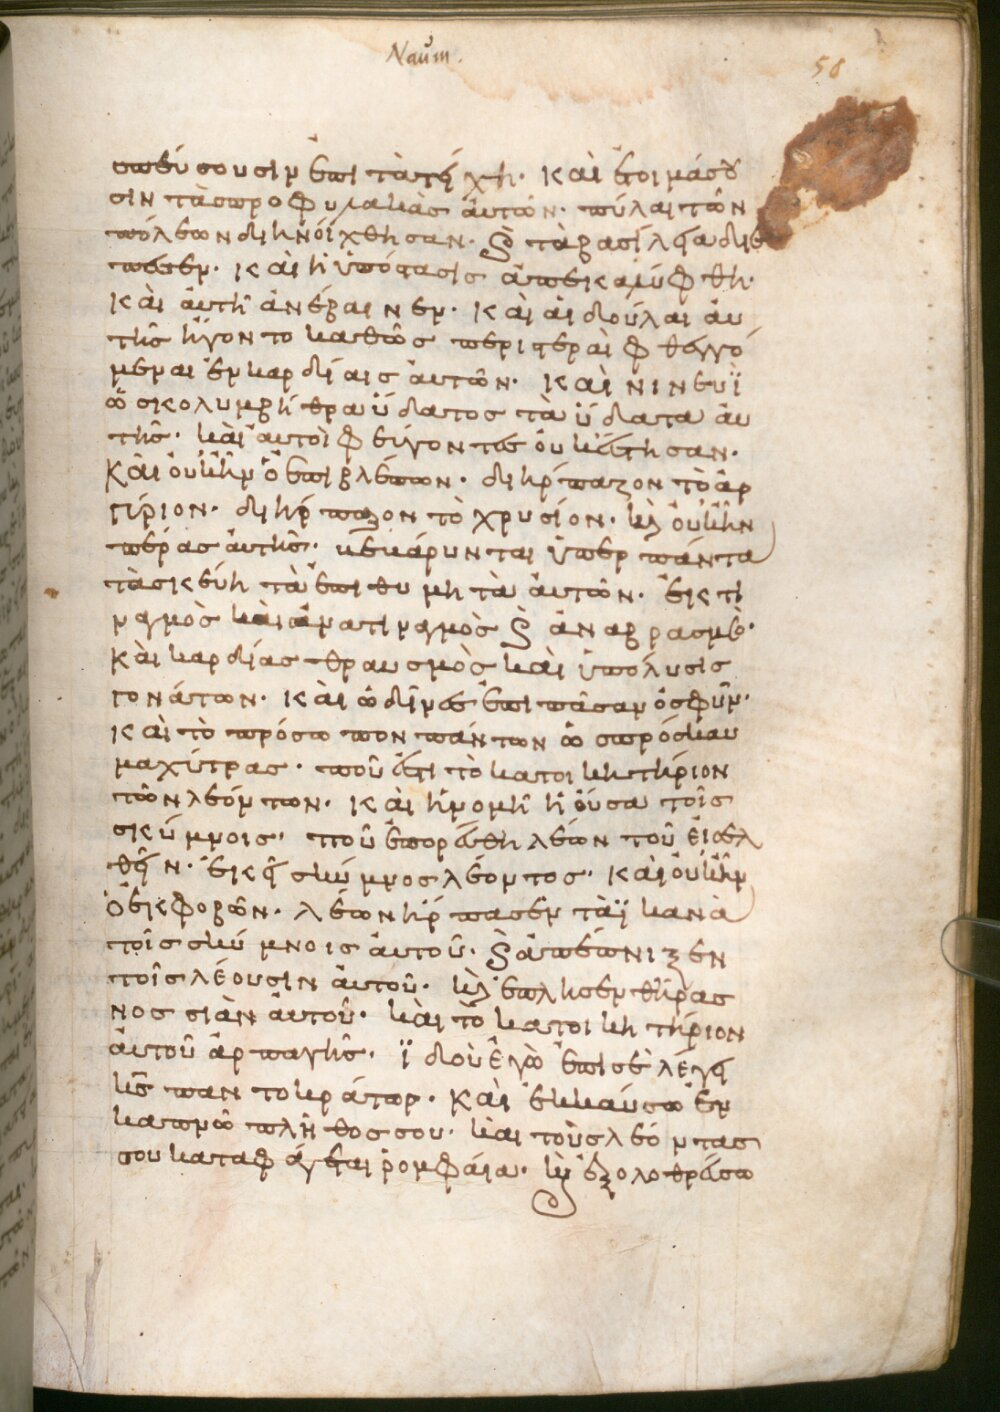 Naum.
58
σπεύσουσιν ἐπὶ τὰ τείχη· καὶ ἑτοιμάσου
σιν τὰσ προφυλακὰσ ἀυτῶν· πύλαι τῶν
πόλεων διηνόίχθησαν· καὶ τὰ βασίλεια διέ
πεσεν· καὶ ἡ ὑπόστασισ ἀπεκαλύφθη·
καὶ ἀυτὴ ἀνέβαινεν· καὶ ἁι δοῦλαι ἀυ
τῆσ ἤγοντο καθὼσ περιστεραὶ φθεγγό
μεναι ἐν καρδίαισ ἀυτῶν· καὶ νινευῒ
ὧσ κολυμβήθρα ὕδατοσ τὰ ὕδατα ἀυ
τῆσ· κὰι ἀυτοὶ φεύγοντεσ ὀυκ ἔστησαν·
Καὶ ὀυκ ἦν ὁ ἐπιβλέπων· διήρπαζον τὸ ἀρ
γύριον· διήρπαζον τὸ χρυσίον· κὰι ὀυκ ἦν
πέρασ ἀυτῆσ· κεκάρυνται ὑπὲρ πάντα
τὰ σκεύη τὰ ἐπιθυμητὰ ἀυτῶν· ἐκτι
ναγμὸσ κὰι ἀνατιναγμὸσ καὶ ἀναβρασμὸσ·
Κὰι καρδίασ θραυσμὸσ κὰι ὑπόλυσισ
γονάτων· καὶ ὠδῖνεσ ἐπὶ πᾶσαν ὀσφῦν·
καὶ τὸ πρόσωπον πάντων ὡσ πρόσκαυ
μα χύτρασ· ποῦ ἐστι τὸ κατοικητήριον
τῶν λεόντων· καὶ ἡ νομὴ ἡ ὀῦσα τοῖσ
σκύμνοισ· ποῦ ἐπορεύθη λέων τοῦ ἐισελ
θεῖν· ἐκεῖ σκύμνοσ λέοντοσ· καὶ ὀυκ ἦν
ὁ ἐκφοβῶν· λέων ἥρπασεν τὰ ϊκανὰ
τοῖσ σκύμνοισ ἀυτοῦ· καὶ ἀπέπνιξεν
τοῖσ λέουσιν ἀυτοῦ· κὰι ἔπλησεν θήρασ
νοσσιὰν ἀυτοῦ· κὰι τὸ κατοικητήριον
ἀυτοῦ ἁρπαγῆσ· ϊδοὺ ἐγὼ ἐπὶ σὲ λέγει
κσ παντοκράτωρ· Καὶ ἐκκαύσω ἐν
καπνῶ πλῆθοσ σου· κὰι τοὺσ λέοντασ
σου καταφάγεται ῥομφάια· κὰι ἐξολοθρεύσω